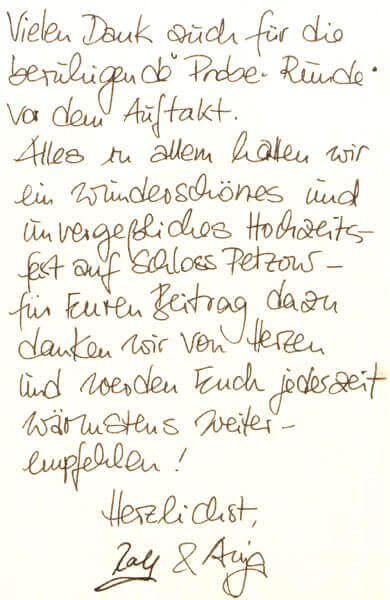 Vielen Dank auch für die
beruhigende "Probe-Runde"
vor dem Auftakt.
Alles in allem hatten wir
ein wunderschönes und
unvergeßliches Hochzeits-
fest auf Schloss Petzow –
für Euren Beitrag dazu
danken wir von Herzen
und werden Euch jederzeit
wärmstens weiter-
empfehlen!
Herzlichst,
&